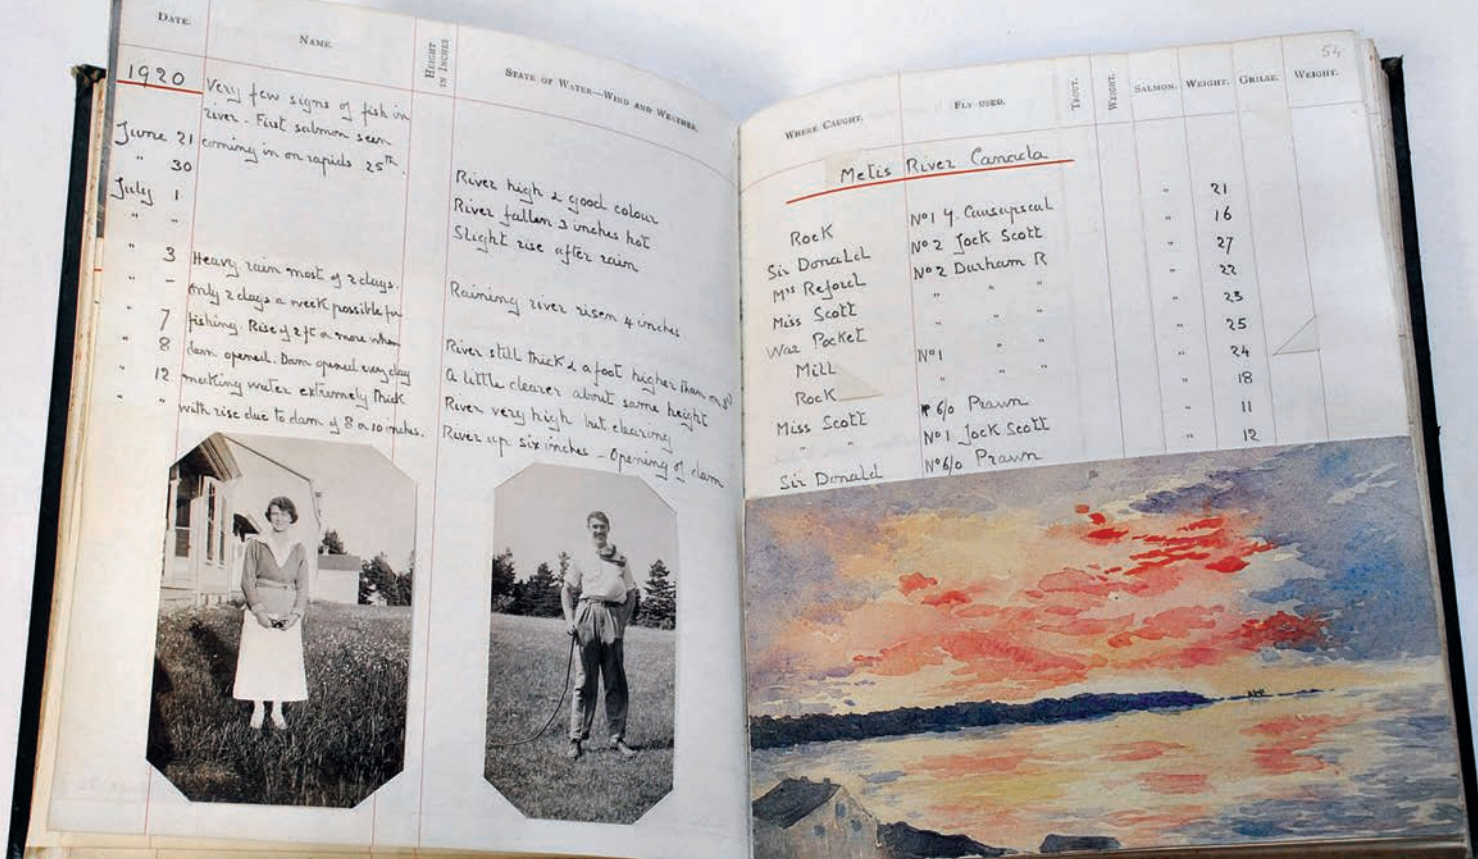 DATE.
NAME.
HEIGHT IN INCHES
STATE OF WATER—WIND AND WEATHER.
1920
Very few signs of fish in
river. First salmon seen
June 21 coming in on rapids 25th.
" 30
July 1
" "
" 3
" -
" 7
" 8
" 12
" "
Heavy rain most of 2 days.
Only 2 days a week possible for
fishing. Rise of 2 ft or more when
dam opened. Dam opened every day
making water extremely thick
with rise due to dam of 8 or 10 inches.
River high & good colour
River fallen 3 inches hot
Slight rise after rain
Raining river risen 4 inches
River still thick & a foot higher than on 3rd
A little clearer about same height
River very high but clearing
River up six inches - Opening of dam
54
WHERE CAUGHT.
FLY USED.
TROUT.
WEIGHT.
SALMON.
WEIGHT.
GRILSE.
WEIGHT.
Metis River Canada
Rock No 1 Y. Causapscal " 21
Sir Donald No 2 Jock Scott " 16
Mrs Reford No 2 Durham R " 27
Miss Scott " " " " 22
War Pocket " " " " 23
Mill No 1 " " " 25
Rock " " " " 24
Miss Scott 6/0 Prawn 18
" " No 1 Jock Scott " 11
Sir Donald No 6/0 Prawn " 12